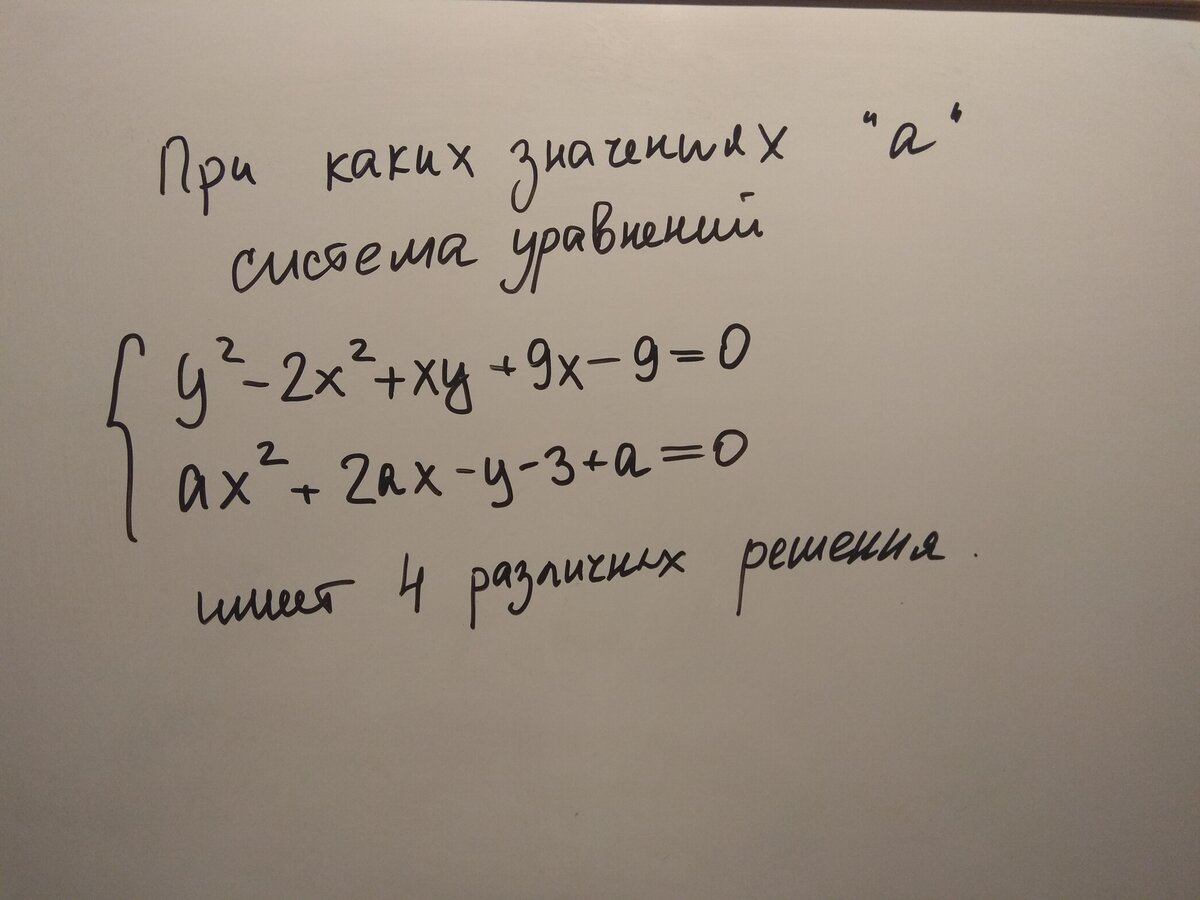 При каких значениях "а"
система уравнений
y²-2x²+xy+9x-9=0
ax²+2ax-y-3+a=0
имеет 4 различных решения.